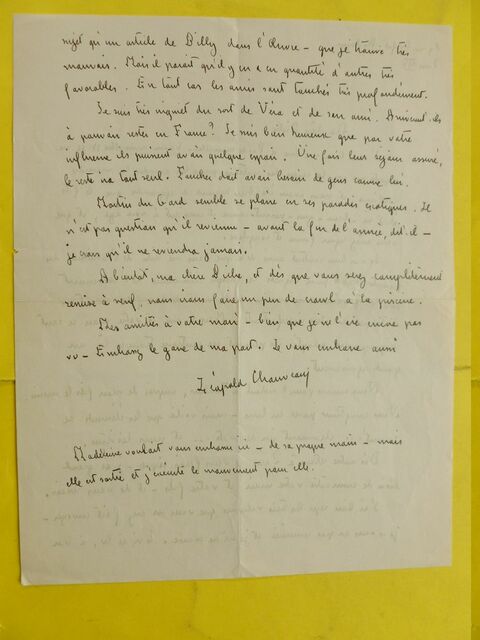 sujet qu'un article de Billy dans l'Œuvre – que je trouve très
mauvais. Mais il paraît qu'il y en a en quantité d'autres très
favorables. En tout cas les amis sont touchés très profondément.
Je suis très inquiet du sort de Véra et de son ami. Arriveront-ils
à pouvoir rester en France? Je suis bien heureux que par votre
influence ils puissent avoir quelque espoir. Une fois leur séjour assuré,
le reste ira tout seul. Faucher doit avoir besoin de gens comme lui.
Martin du Gard semble se plaire en ses paradis exotiques. Il
n'est pas question qu'il revienne – avant la fin de l'année, dit-il –
je crois qu'il ne reviendra jamais.
A bientôt, ma chère Biche, et dès que vous serez complètement
remise à neuf, nous irons faire un peu de crawl à la piscine.
Mes amitiés à votre mari – bien que je ne l'aie encore pas
vu – Embrassez le gosse de ma part. Je vous embrasse aussi
Léopold Chauveau
Madeleine voulait vous embrasser ici – de sa propre main – mais
elle est sortie et j'exécute le mouvement pour elle.